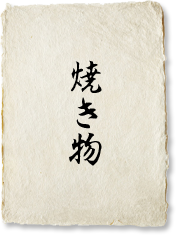 焼き物